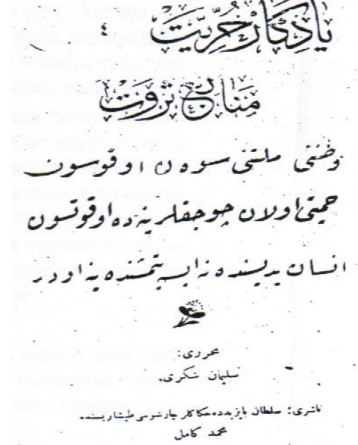 یادکار حریت ٤
منابع ثروت
وطننی ملتنی سوەن اوقوسون
حمیتی اولان چوجقلرینه ده اوقوتسون
انسان یدیسنده نه ایسه یتمشنده ینه اودر
محرری:
سلیمان شکری.
ناشری: سلطان بایزیدده حکاکلر چارشوسی طیشاریسنده
محمد کامل